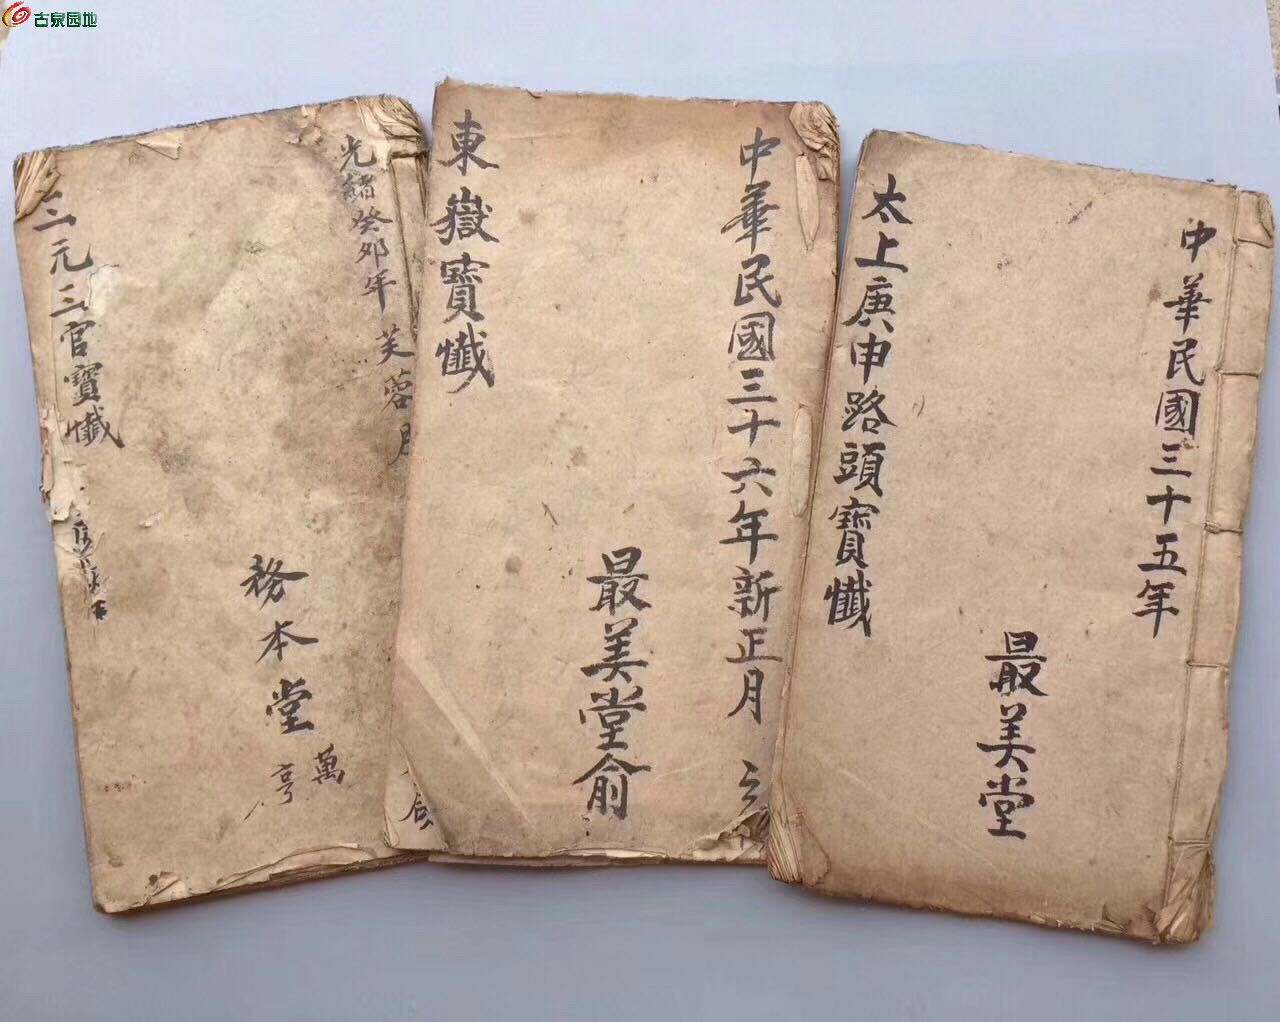 古泉园地
中華民國三十五年
最美堂
太上庚申路頭寶懺
中華民國三十六年新正月
最美堂俞
東嶽寶懺
光緒癸卯年 芙蓉月
務本堂
萬
亨
三元三官寶懺